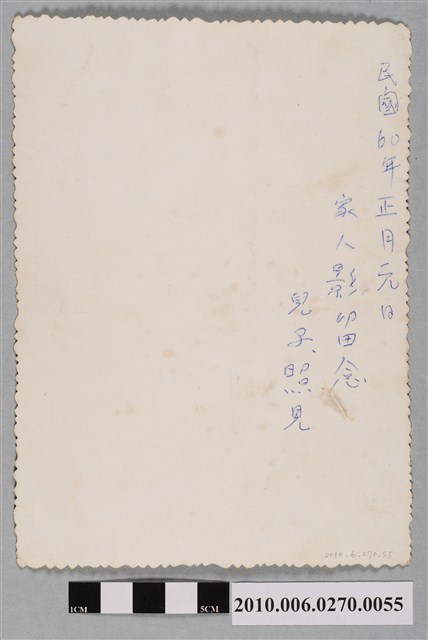 民國60年正月元日
家人影印田念
兒子、照見
2010.6.270.55
1CM
5CM
2010.006.0270.0055